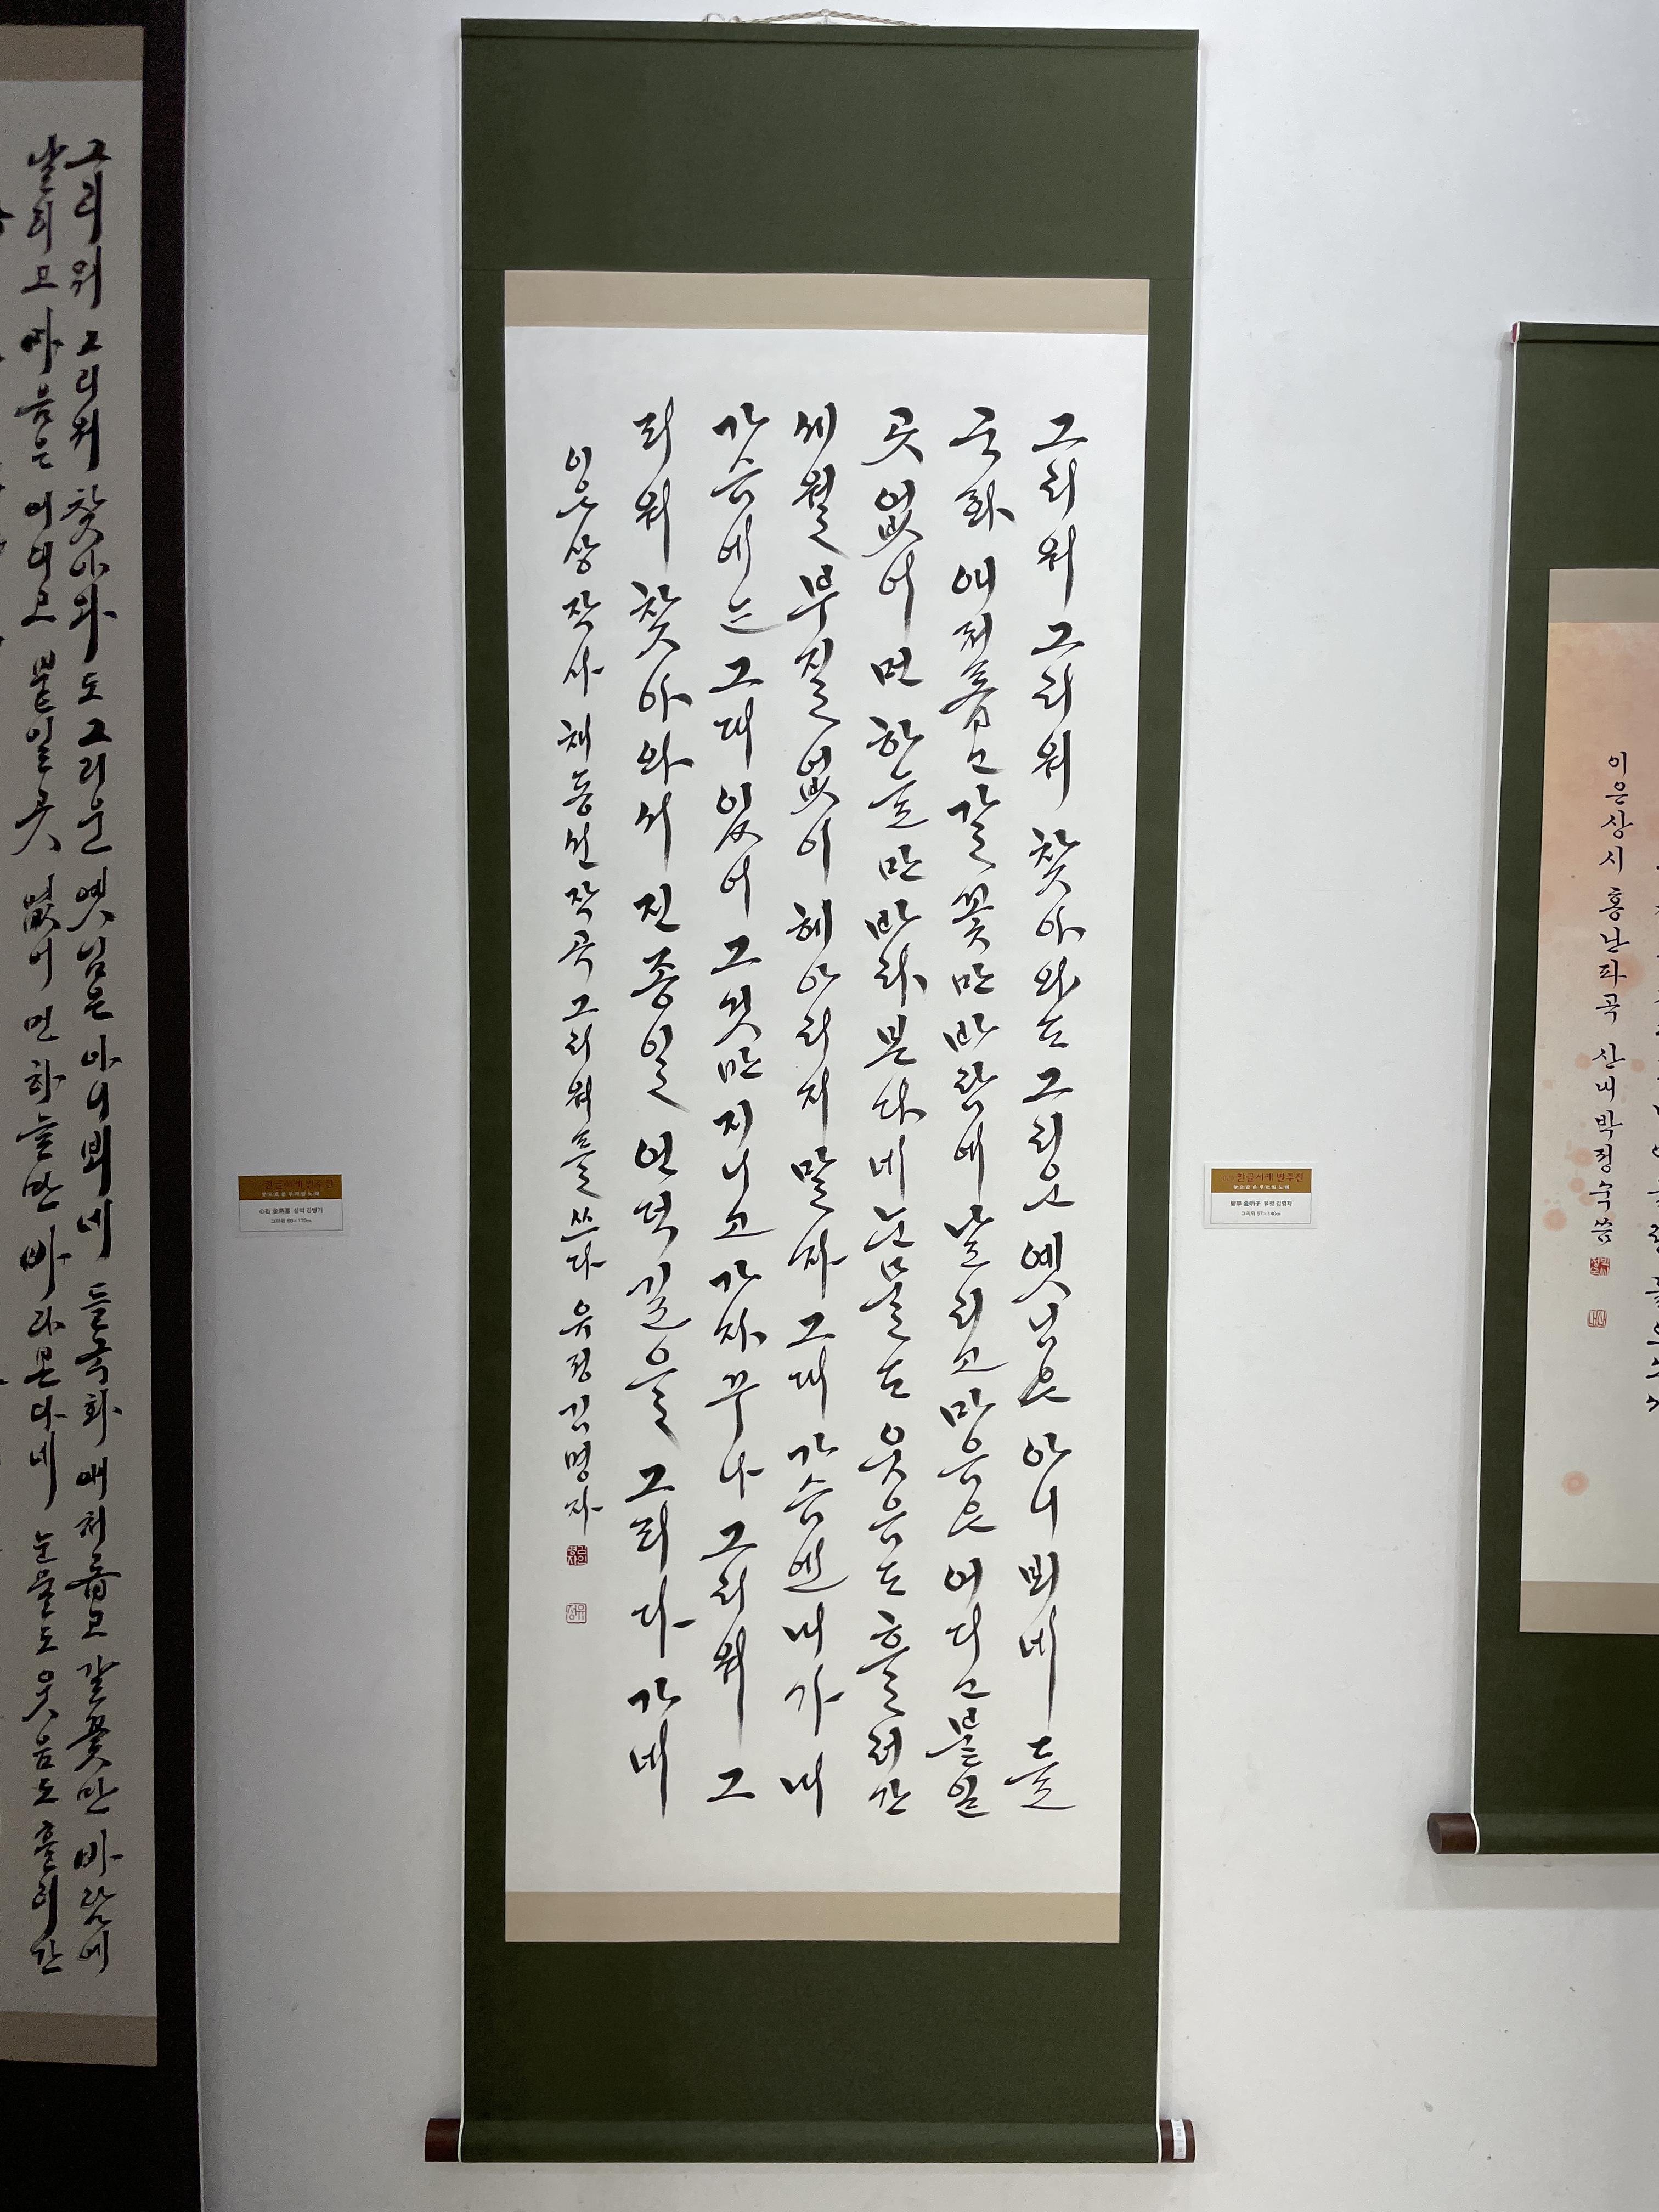 그리워 그리워 찾아와도 그리운 옛님은 아니뵈네 들
국화 애처롭고 갈꽃만 바람에 날리고 마음은 어디고 붙일
곳 없어 먼 하늘만 바라본다네 눈물도 웃음도 흘러간
세월 부질없이 헤아리지 말자 그대 가슴엔 내가 내
가슴에는 그대 있어 그것만 지니고 가자꾸나 그리워 그
리워 찾아와서 진종일 언덕길을 그리다 가네
이은상 작사 채동선 작곡 그리워를 쓰다 유정 김명자
그리워 그리워 찾아와도 그리운 옛님은 아니뵈네 들국화 애처롭고 갈꽃만 바람에
날리고 마음은 어디고 붙일곳 없어 먼하늘만 바라본다네 눈물도 웃음도 흘러간
이은상 시 홍난파 곡 산내 박정숙 씀
한글서예 변주전
心石 金炳基 심석 김병기
그리워 60×170㎝
한글서예 변주전
金明子 유정 김명자
그리워 57×140㎝